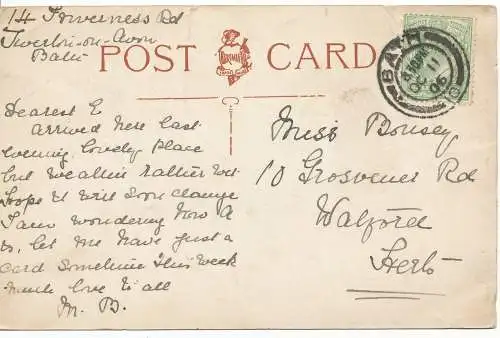 14 Inverness Rd
Twerton-on-Avon
Bath
POST CARD
BATH
OC 11
06
Dearest E
arrived here last
evening, lovely place
but weather rather wet
hope it will soon change
I am wondering how A
is, let me have just a
card sometime this week
much love to all
M. B.
Miss Bousey
10 Grosvenor Rd
Watford
Herts